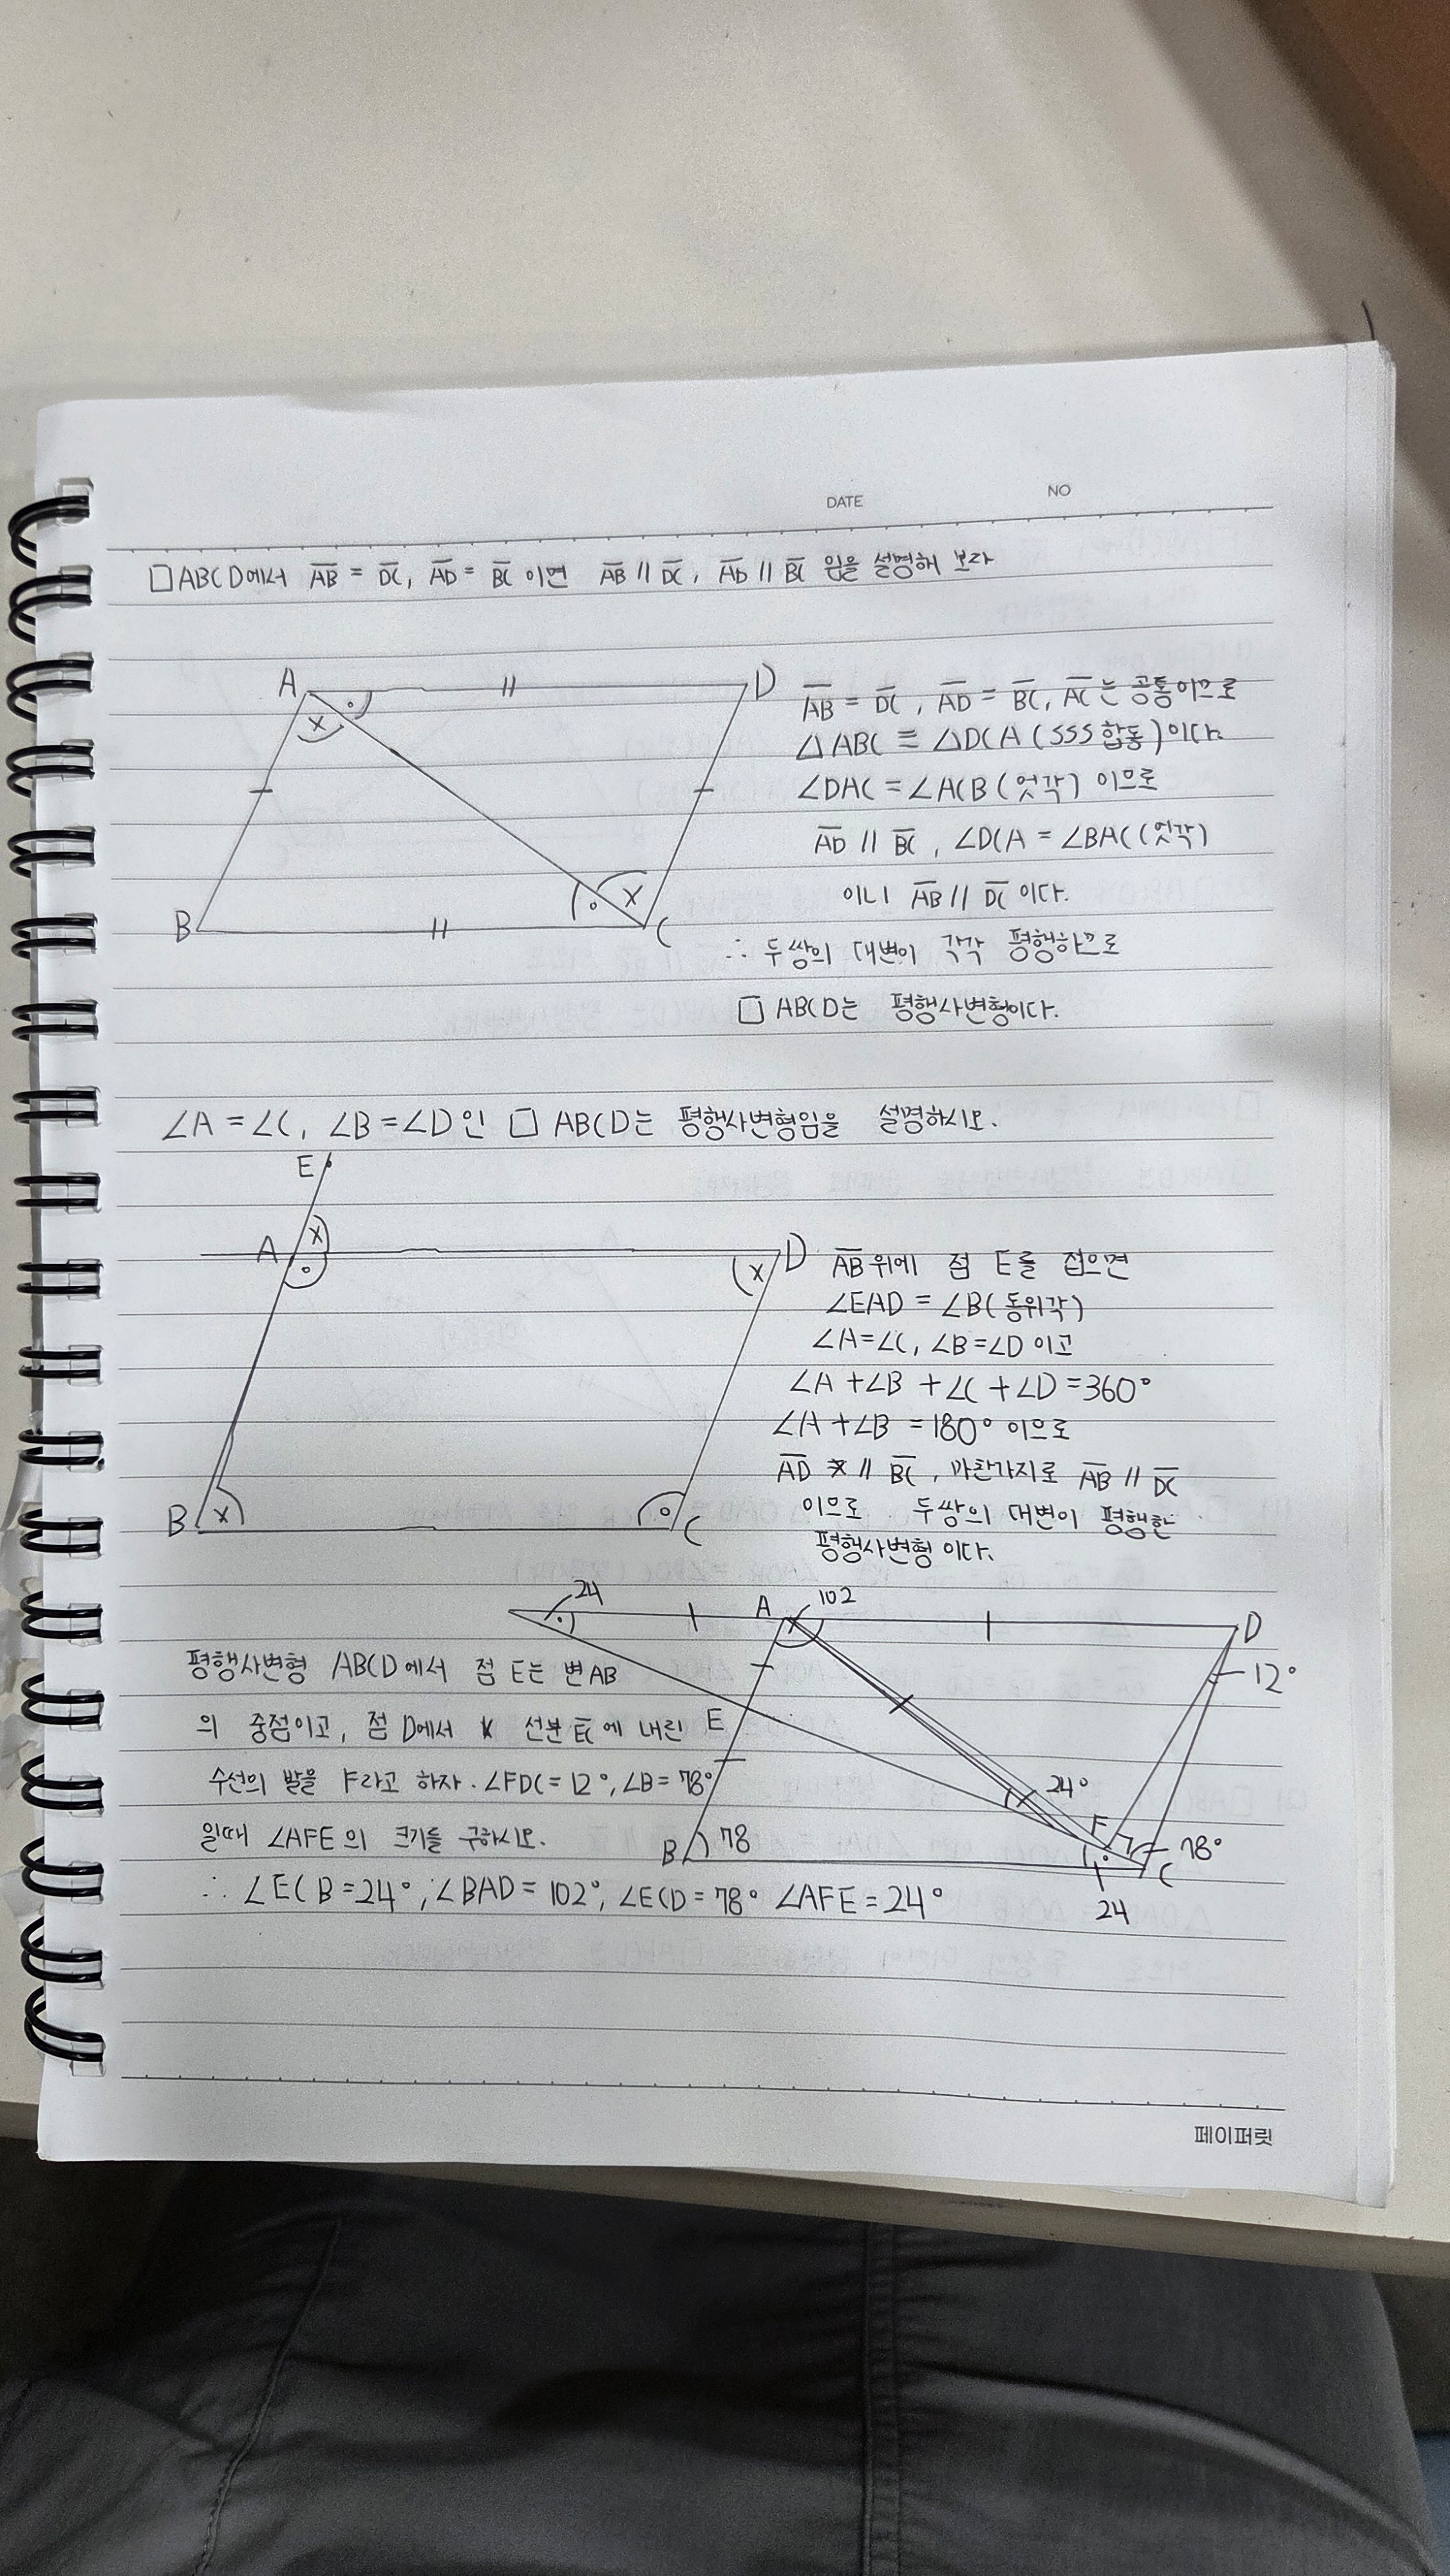 DATE
NO
□ABCD에서 AB = DC, AD = BC 이면 AB // DC, AD // BC 임을 설명해 보라
A
D
x
B
C
x
AB = DC, AD = BC, AC는 공통이므로
△ABC ≡ △DCA (SSS합동)이다.
∠DAC = ∠ACB (엇각) 이므로
AD // BC, ∠DCA = ∠BAC (엇각)
이니 AB // DC 이다.
∴ 두쌍의 대변이 각각 평행하므로
□ ABCD는 평행사변형이다.
∠A = ∠C, ∠B = ∠D 인 □ ABCD는 평행사변형임을 설명하시오.
E
A
x
D
x
B
x
C
AB위에 점 E를 잡으면
∠EAD = ∠B (동위각)
∠A=∠C, ∠B=∠D 이고
∠A + ∠B + ∠C + ∠D = 360°
∠A + ∠B = 180° 이므로
AD // BC, 마찬가지로 AB // DC
이므로 두쌍의 대변이 평행한
평행사변형 이다.
24
A
102
D
12°
E
24°
F
78°
B
78
C
24
평행사변형 ABCD에서 점 E는 변AB
의 중점이고, 점 D에서 선분 EC에 내린
수선의 발을 F라고 하자. ∠FDC = 12°, ∠B = 78°
일때 ∠AFE의 크기를 구하시오.
∴ ∠ECB = 24°, ∠BAD = 102°, ∠ECD = 78° ∠AFE = 24°
페이퍼릿